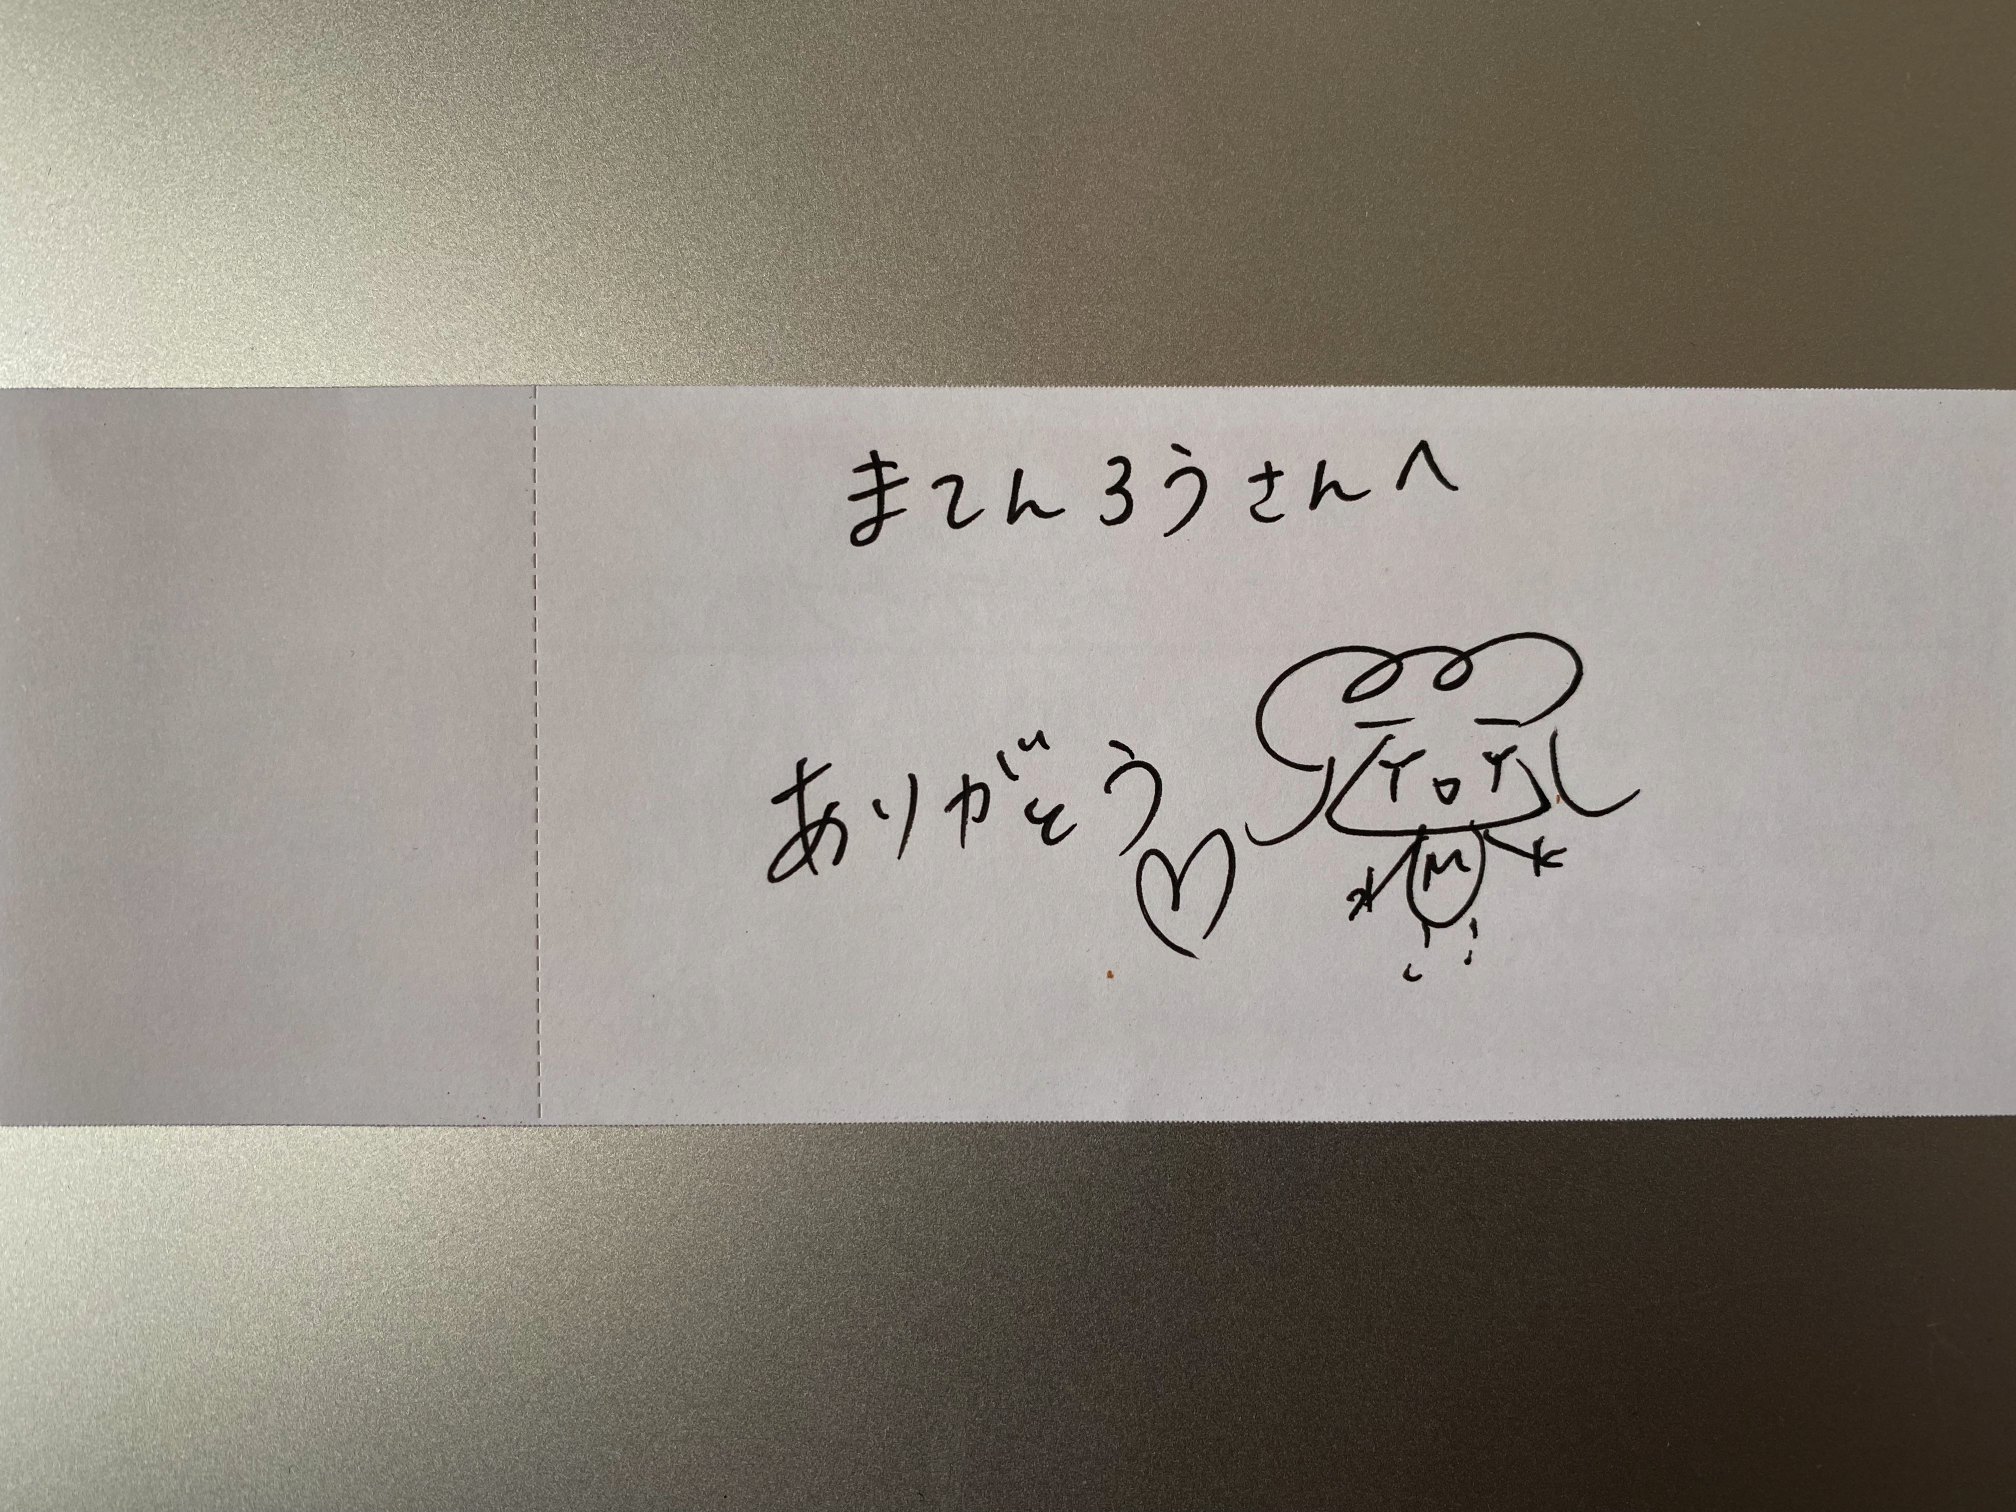 まてんろうさんへ
ありがとう♡
M